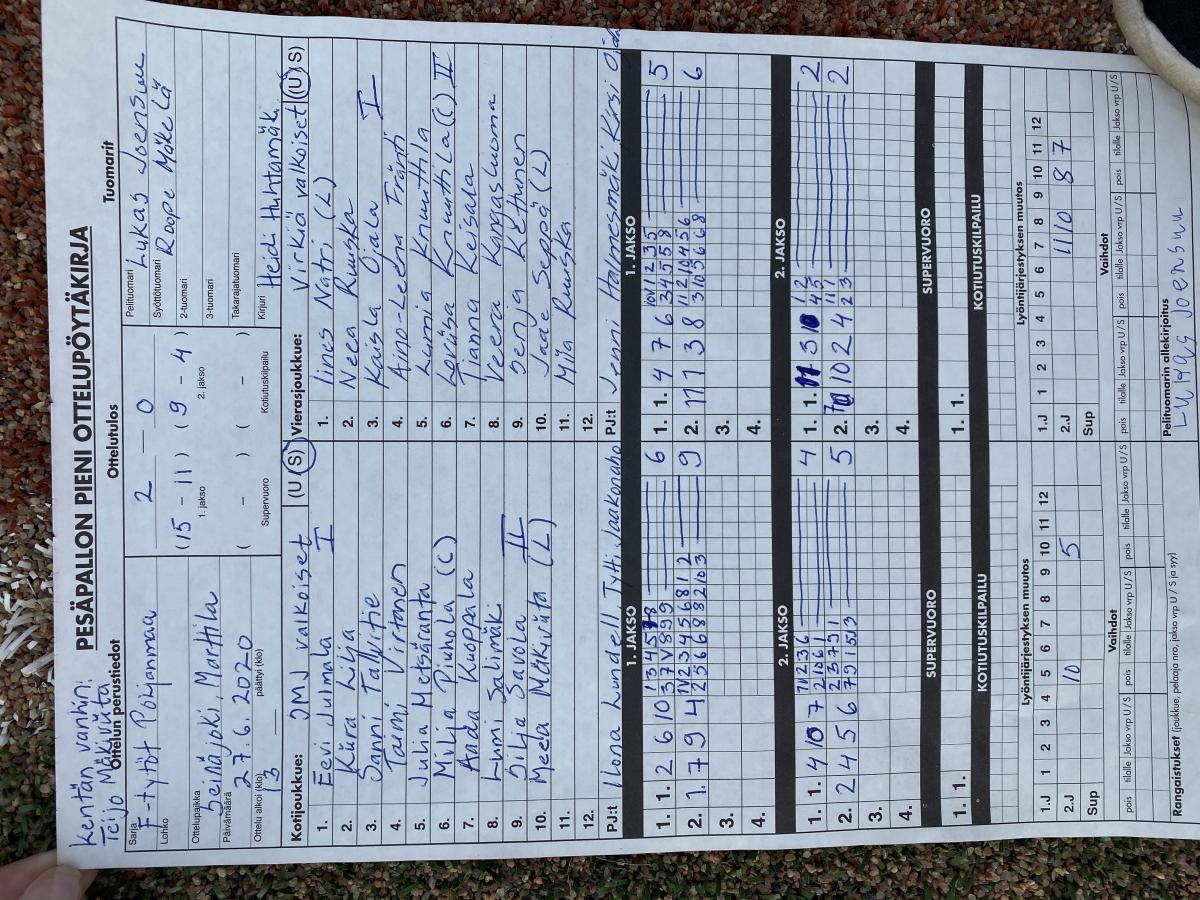 Kentän vanhin:
Teijo Mäkiviita
PESÄPALLON PIENI OTTELUPÖYTÄKIRJA
Ottelun perustiedot
Ottelutulos
Tuomarit
Sarja
F-tytöt Pohjanmaa
Lohko
Ottelupaikka
Seinäjoki, Marttila
Päivämäärä
27.6.2020
Ottelu alkoi (klo)
päättyi (klo)
13
2 — 0
(15 - 11) (9 - 4)
1. jakso
2. jakso
( - ) ( - )
Supervuoro
Kotiutuskilpailu
Pelituomari
Lukas Joensuu
Syöttötuomari
Roope Mäkelä
2-tuomari
3-tuomari
Takarajatuomari
Kirjuri
Heidi Huhtamäk.
Kotijoukkue: JMJ valkoiset (U S)
1. Eevi Julmala I
2. Kiira Lilja
3. Sanni Talvitie
4. Taimi Virtanen
5. Julia Metsäranta
6. Milja Piuhola (C)
7. Aada Kuoppala
8. Lumi Salimäki
9. Silja Savola II
10. Meela Mäkiviita (L)
11.
12.
PJ:t Ilona Lundell, Tytti Jaakonaho
Vierasjoukkue: Virkiä valkoiset (U S)
1. Iines Natri (L)
2. Neea Ruuska
3. Kaisla Ojala I
4. Aino-Leena Tränti
5. Lumia Knuuttila
6. Loviisa Knuuttila (C) II
7. Tianna Keisala
8. Veera Kangasluoma
9. Senja Kettunen
10. Jaae Seppä (L)
11. Miia Ruuska
12.
PJ:t Jenni Halmesmäk, Kirsi Ojala
1. JAKSO
1. 1. 2 6 10 6
2. 1. 7 9 4 9
3.
4.
1. JAKSO
1. 1. 4 7 6 5
2. 11 1 3 8 6
3.
4.
2. JAKSO
1. 1. 4 10 7 4
2. 2 4 5 6 5
3.
4.
2. JAKSO
1. 1. 2
2. 10 2 4 2
3.
4.
SUPERVUORO
1. 1.
SUPERVUORO
1. 1.
KOTIUTUSKILPAILU
KOTIUTUSKILPAILU
Lyöntijärjestyksen muutos
1.J 1 2 3 4 5 6 7 8 9 10 11 12
2.J 10 5
Sup
Lyöntijärjestyksen muutos
1.J 1 2 3 4 5 6 7 8 9 10 11 12
2.J 11 10 8 7
Sup
Vaihdot
pois tilalle Jakso vrp U/S pois tilalle Jakso vrp U/S pois tilalle Jakso vrp U/S
Vaihdot
pois tilalle Jakso vrp U/S pois tilalle Jakso vrp U/S pois tilalle Jakso vrp U/S
Rangaistukset (joukkue, pelaaja nro, jakso, vrp U/S ja syy)
Pelituomarin allekirjoitus
Lukas Joensuu